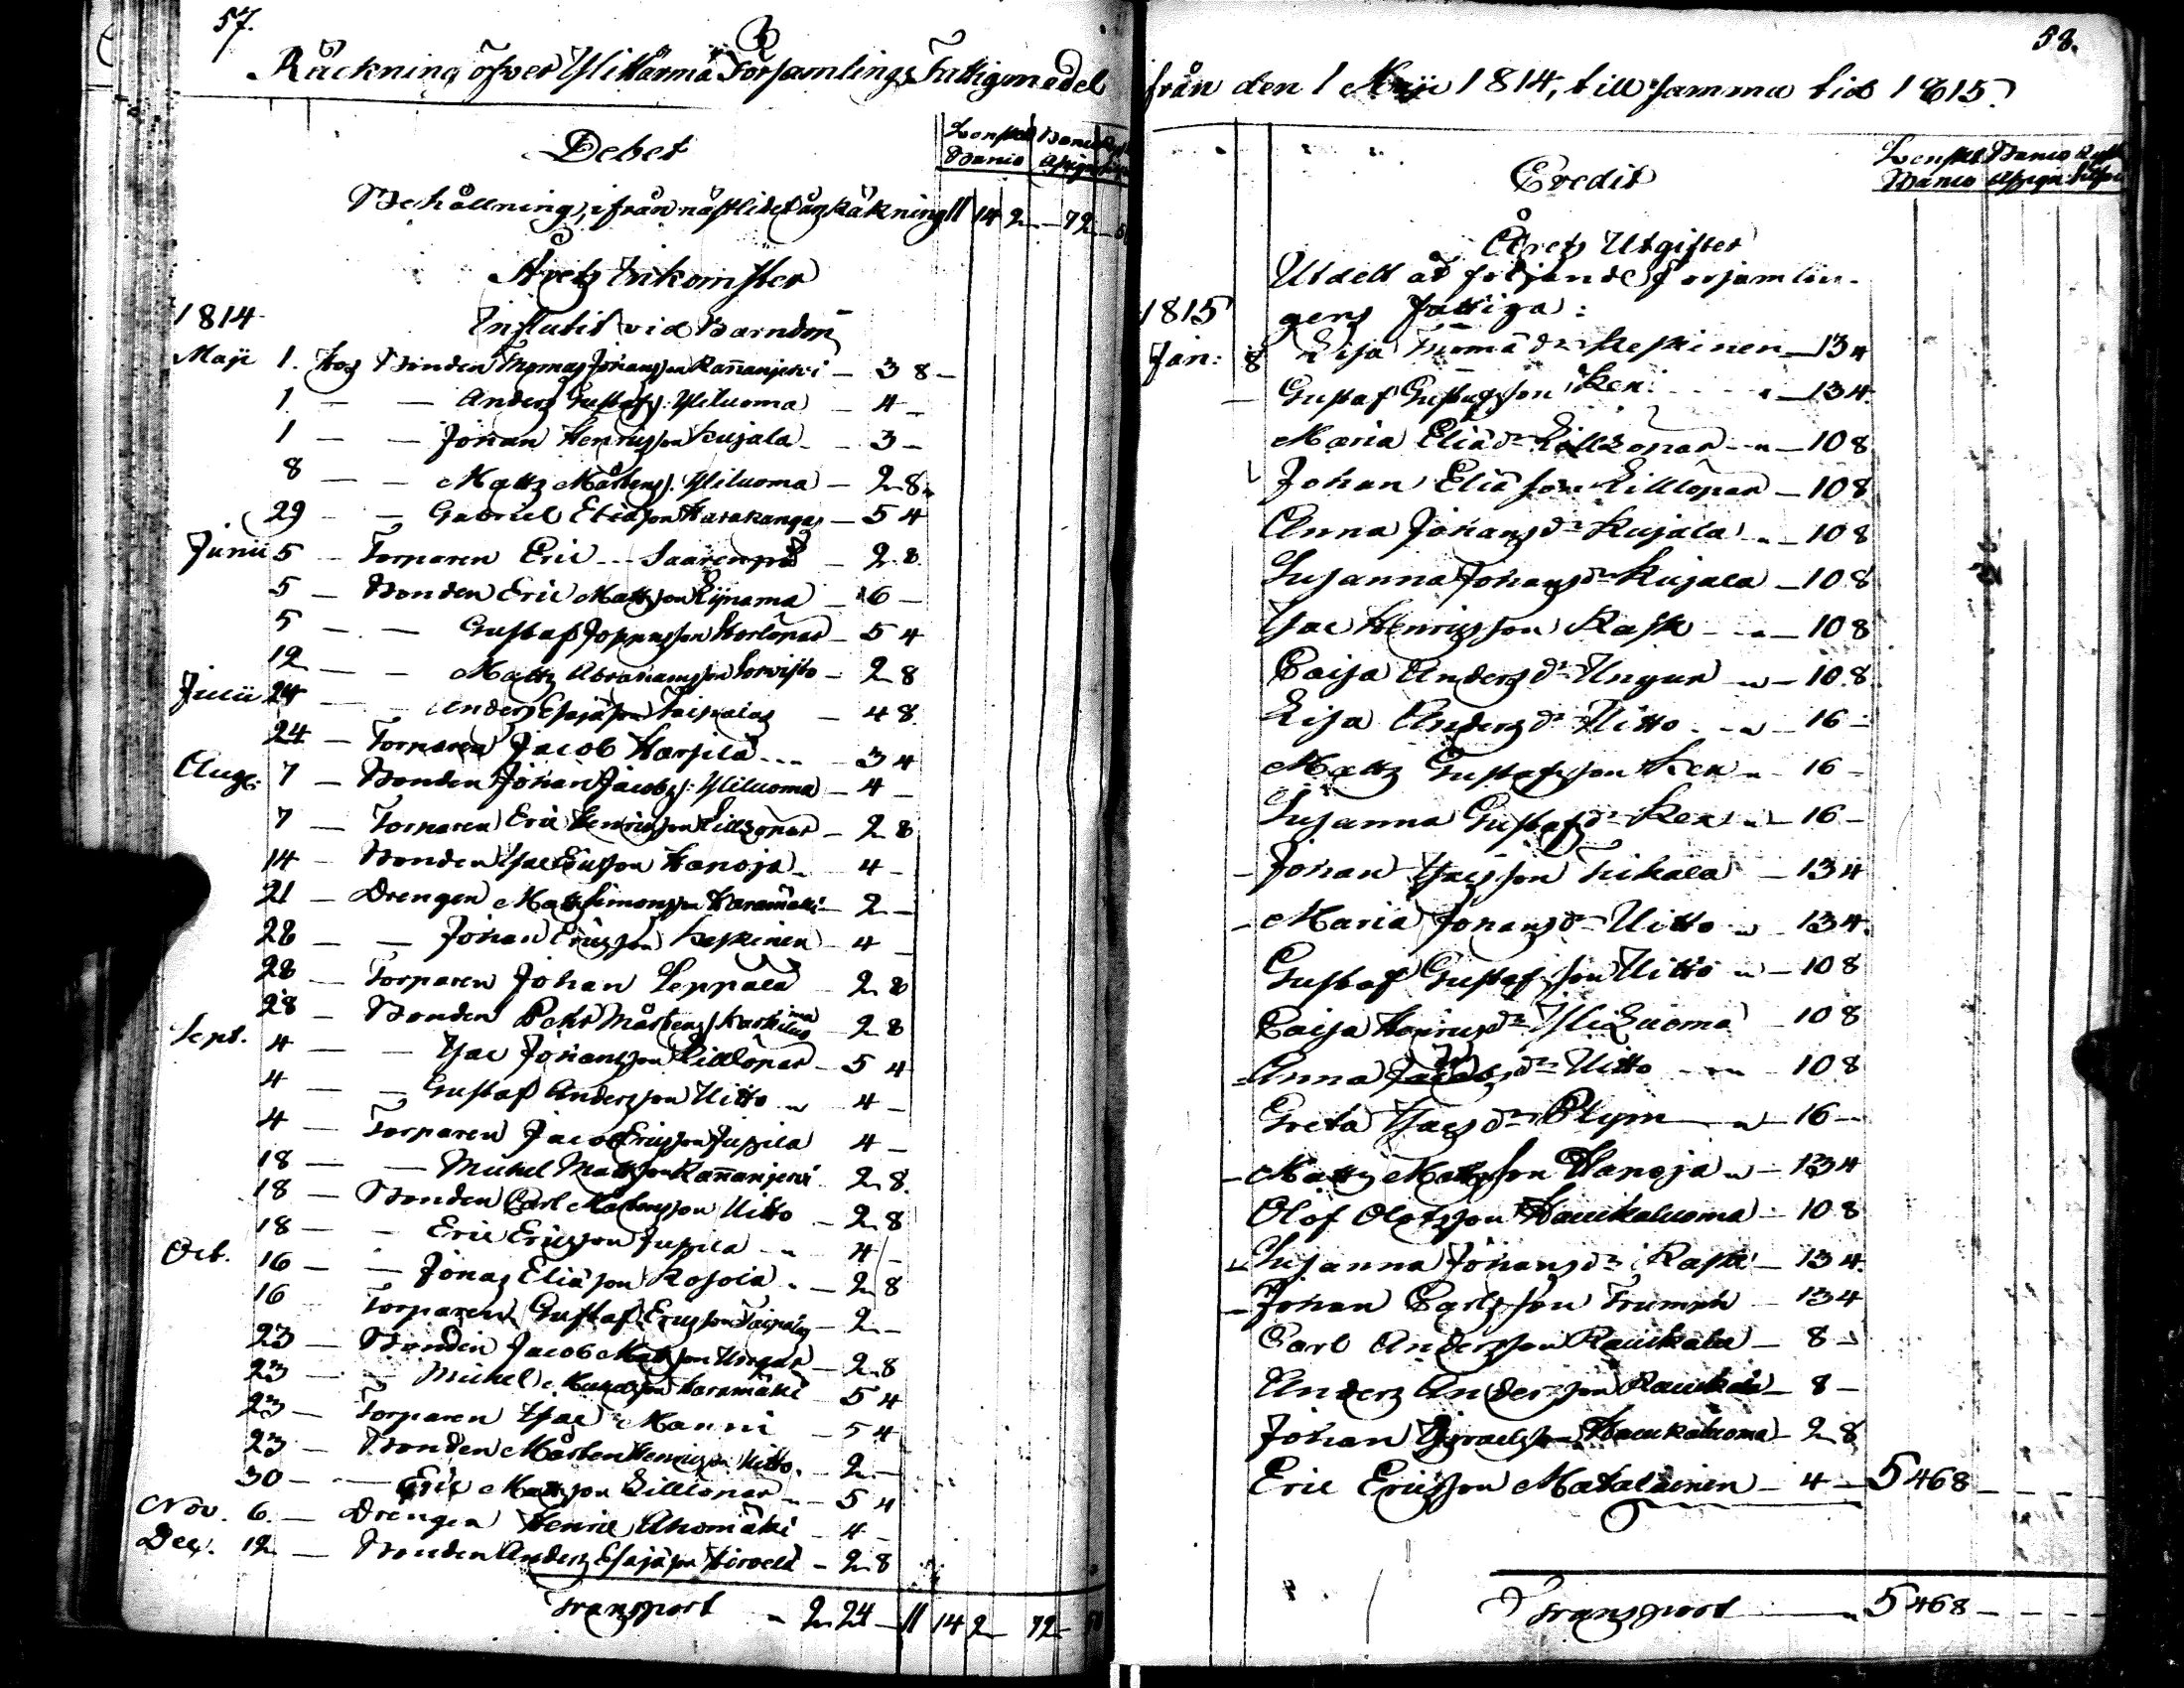 57.
Räckning öfver Ylikärmä Församlings Fattigmedel
Debet
Svenskt Banco
Banco
Banco
Behållning, ifrån nästlidet års Räkning 11 14 2 — 72
Årets Inkomster
1814
Influtit vid Barndop
Maji 1. Hos Bonden Thomas Johansson Rannanjervi — 3 8 —
1 — — Anders Gustafs: Yliluoma — 4 —
1 — — Johan Henricsson Kujala — 3 —
8 — — Matts Mårtens: Yliluoma — 2 8
29 — — Gabriel Eliasson Harakangas — 5 4
Junii 5 — Torparen Eric Saarenpä — 2 8
5 — Bonden Eric Mattsson — 6 —
5 — — Gustaf Johansson — 5 4
12 — — Matts Abrahamsson — 2 8
Julii 24 — — Anders Esajasson Taipalus — 4 8
24 — Torparen Jacob Harjila — 3 4
Aug. 7 — Bonden Johan Jacobs: Yliluoma — 4 —
7 — Torparen Eric Henricsson Lillsopar — 2 8
14 — Bonden Isac Ericsson Hanoja — 4 —
21 — Drengen Matts Simonsson Haramäki — 2 —
28 — — Johan Ericsson Keskinen — 4 —
28 — Torparen Johan Leppälä — 2 8
28 — Bonden Pehr Mårtens: — 2 8
Sept. 4 — — Isac Johansson Lillsopar — 5 4
4 — — Gustaf Andersson Uitto — 4 —
4 — Torparen Jacob Ericsson Juppila 4 —
18 — — Michel Mattsson Rannanjervi 2 8
18 — Bonden Carl Mårtensson Uitto — 2 8
18 — — Eric Ericsson Juppila — 4 —
Oct. 16 — — Jonas Eliasson Kojola — 2 8
16 Torparen Gustaf Ericsson Taipalus — 2 —
23 — Bonden Jacob Mattsson — 2 8
23 — — Michel Michelsson Haramäki 5 4
23 — Torparen Isac Manni — 5 4
23 — Bonden Mårten Henricsson Uitto — 2 —
30 — — Eric Mattsson Lillsopar — 5 4
Nov. 6. — Drengen Henric Ahomäki — 4 —
Dec. 12 — Bonden Anders Esajasson Hirvelä — 2 8
Transport — 2 24 — 11 14 2 — 72
58.
från den 1 Maji 1814, till samma tid 1815.
Credit
Svenskt Banco
Banco
Banco
Årets Utgifter
Utdelt åt följande Församlin-
1815 gens Fattiga:
Jan: 8 Lisa Thomädr Keskinen — 13 4
Gustaf Gustafsson Rex — 13 4
Maria Eliädr Lillsopar — 10 8
Johan Eliäson Lillsopar — 10 8
Anna Johansdr Kujala — 10 8
Susanna Johansdr Kujala — 10 8
Isac Henricsson Rask — 10 8
Caisa Andersdr Ungur — 10 8
Lisa Andersdr Uitto — 16 —
Matts Gustafsson Rex — 16 —
Susanna Gustafsdr Rex — 16 —
Johan Isacsson Tikala — 13 4
Maria Johansdr Uitto — 13 4
Gustaf Gustafsson Uitto — 10 8
Caisa Henricsdr YliLuoma — 10 8
Anna dr Uitto — 10 8
Greta Isacsdr Plym — 16 —
Matts Mattsson Hanoja — 13 4
Olof Olofsson Haukaluoma — 10 8
Susanna Johansdr Rask — 13 4
Johan Carlsson Trumph — 13 4
Carl Andersson Raukala — 8 —
Anders Andersson Raukala — 8 —
Johan Israelsson Haukaluoma — 2 8
Eric Ericsson Matalainen — 4 — 5 46 8
Transport — 5 46 8